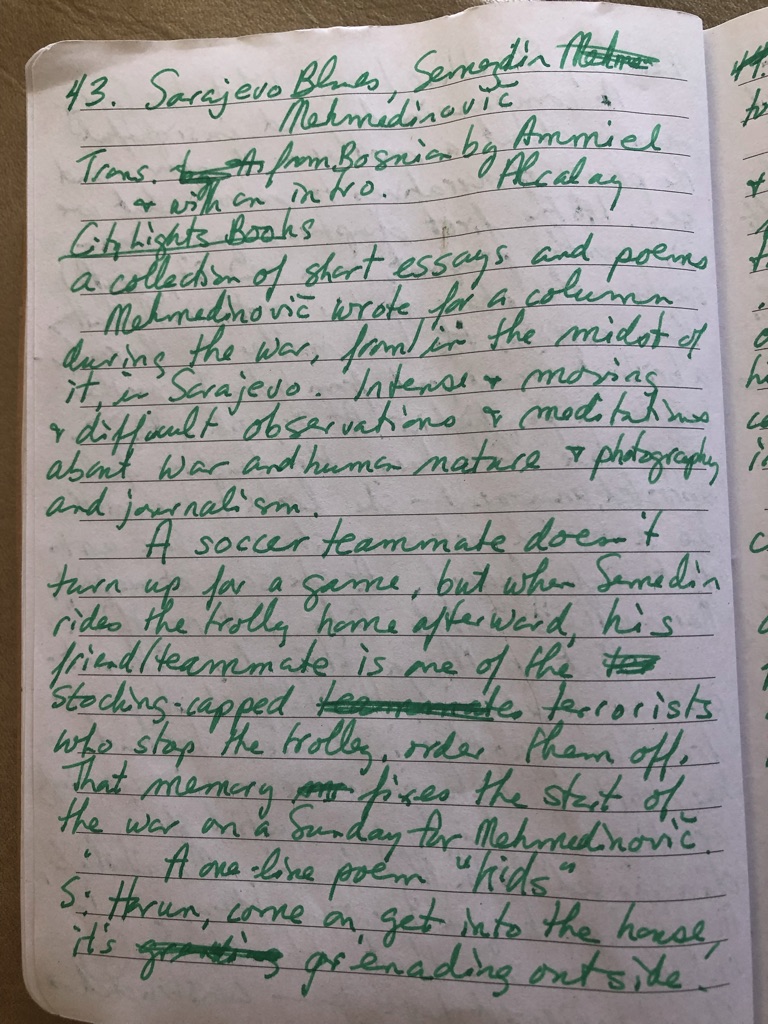 43. Sarajevo Blues, Semezdin
Mehmedinovič
Trans. from Bosnian by Ammiel
& with an intro. Alcalay
City Lights Books
a collection of short essays and poems
Mehmedinovič wrote for a column
during the war, from/in the midst of
it, in Sarajevo. Intense & moving
& difficult observations & meditations
about war and human nature & photography
and journalism.
A soccer teammate doesn't
turn up for a game, but when Semedin
rides the trolly home afterward, his
friend/teammate is one of the
stocking-capped terrorists
who stop the trolley, order them off.
That memory fixes the start of
the war on a Sunday for Mehmedinovič.
A one-line poem "Kids"
S: Harun, come on, get into the house,
it's grenading outside.